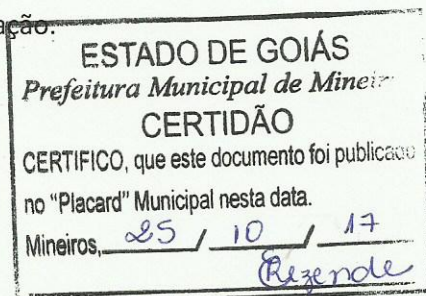 ação.
ESTADO DE GOIÁS
Prefeitura Municipal de Mineir
CERTIDÃO
CERTIFICO, que este documento foi publicado
no "Placard" Municipal nesta data.
Mineiros, 25 / 10 / 17
Rezende